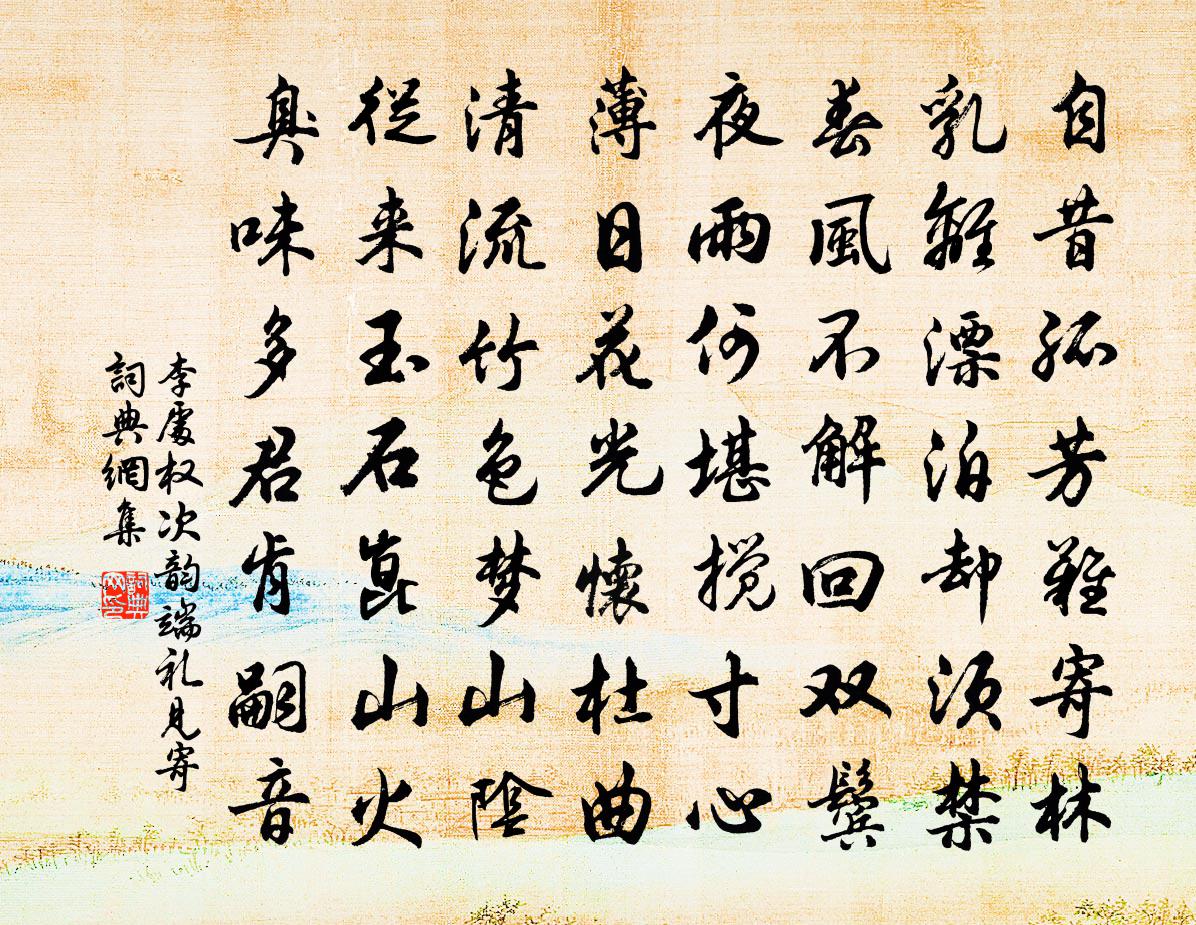 自昔孤芳難寄林
亂離漂泊却須禁
春風不解回双鬓
夜雨何堪搅寸心
薄日花光懷杜曲
清流竹色梦山陰
從来玉石崑山火
臭味多君肯嗣音
李處权次韵端礼見寄
詞典網集
詞典网印